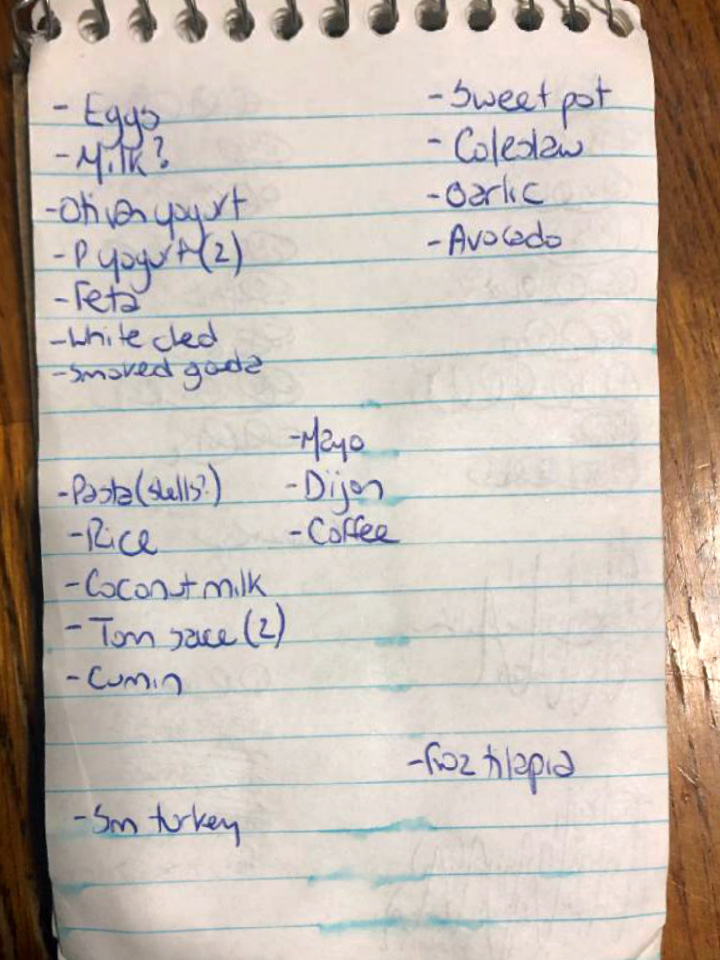 - Eggs
- Milk?
- Oh yogurt
- P yogurt (2)
- Feta
- White ched
- Smoked goda
- Sweet pot
- Coleslaw
- Garlic
- Avocado
- Pasta (shells?)
- Rice
- Coconut milk
- Tom sauce (2)
- Cumin
- Mayo
- Dijon
- Coffee
- Froz tilapia
- Sm turkey